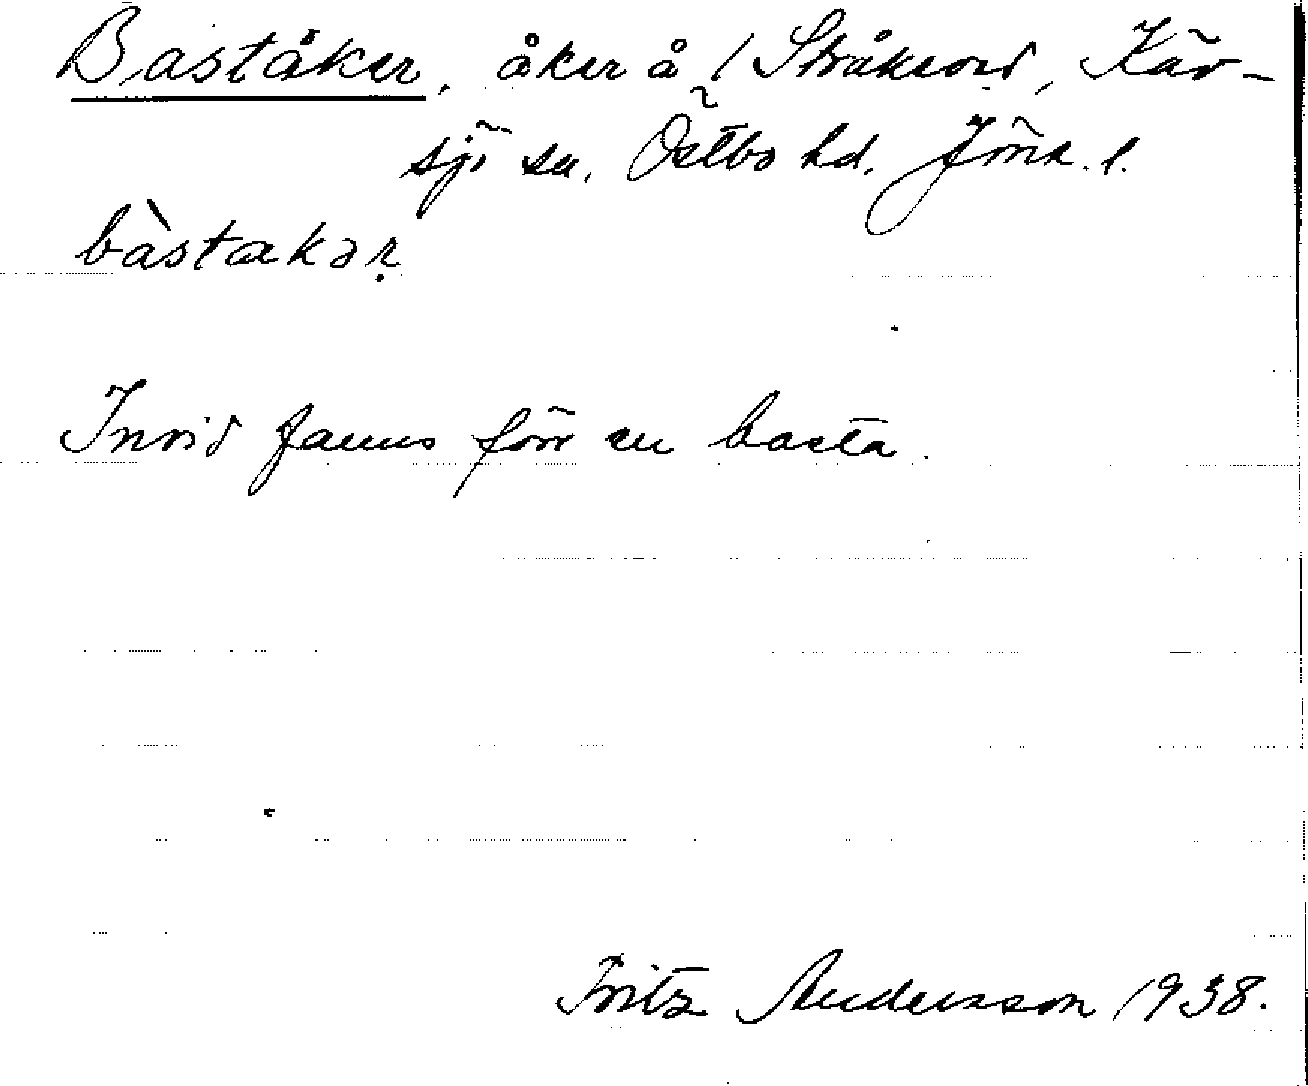 Baståker, åker å 1 Stråkered, Käv-
sjö sn. Östbo hd. Jönk. l.
bàstakəṛ
Invid fanns förr en basta.
Fritz Andersson 1938.